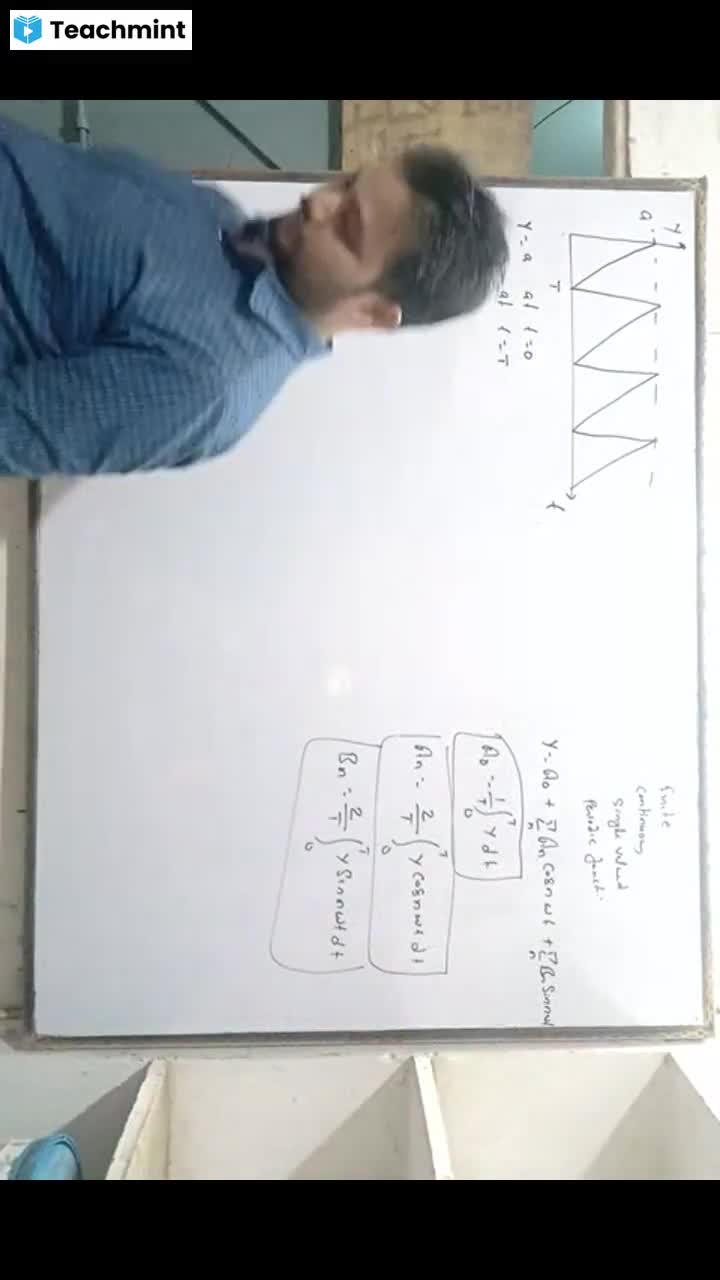 Teachmint
y
a
T
t
Y = a at t = 0
at t = T
finite
continuous
single valued
Periodic funct.
Y = A₀ + Σₙ Aₙ cos nωt + Σₙ Bₙ sin nωt
A₀ = 1/T ∫₀ᵀ Y dt
Aₙ = 2/T ∫₀ᵀ Y cos nωt dt
Bₙ = 2/T ∫₀ᵀ Y sin nωt dt